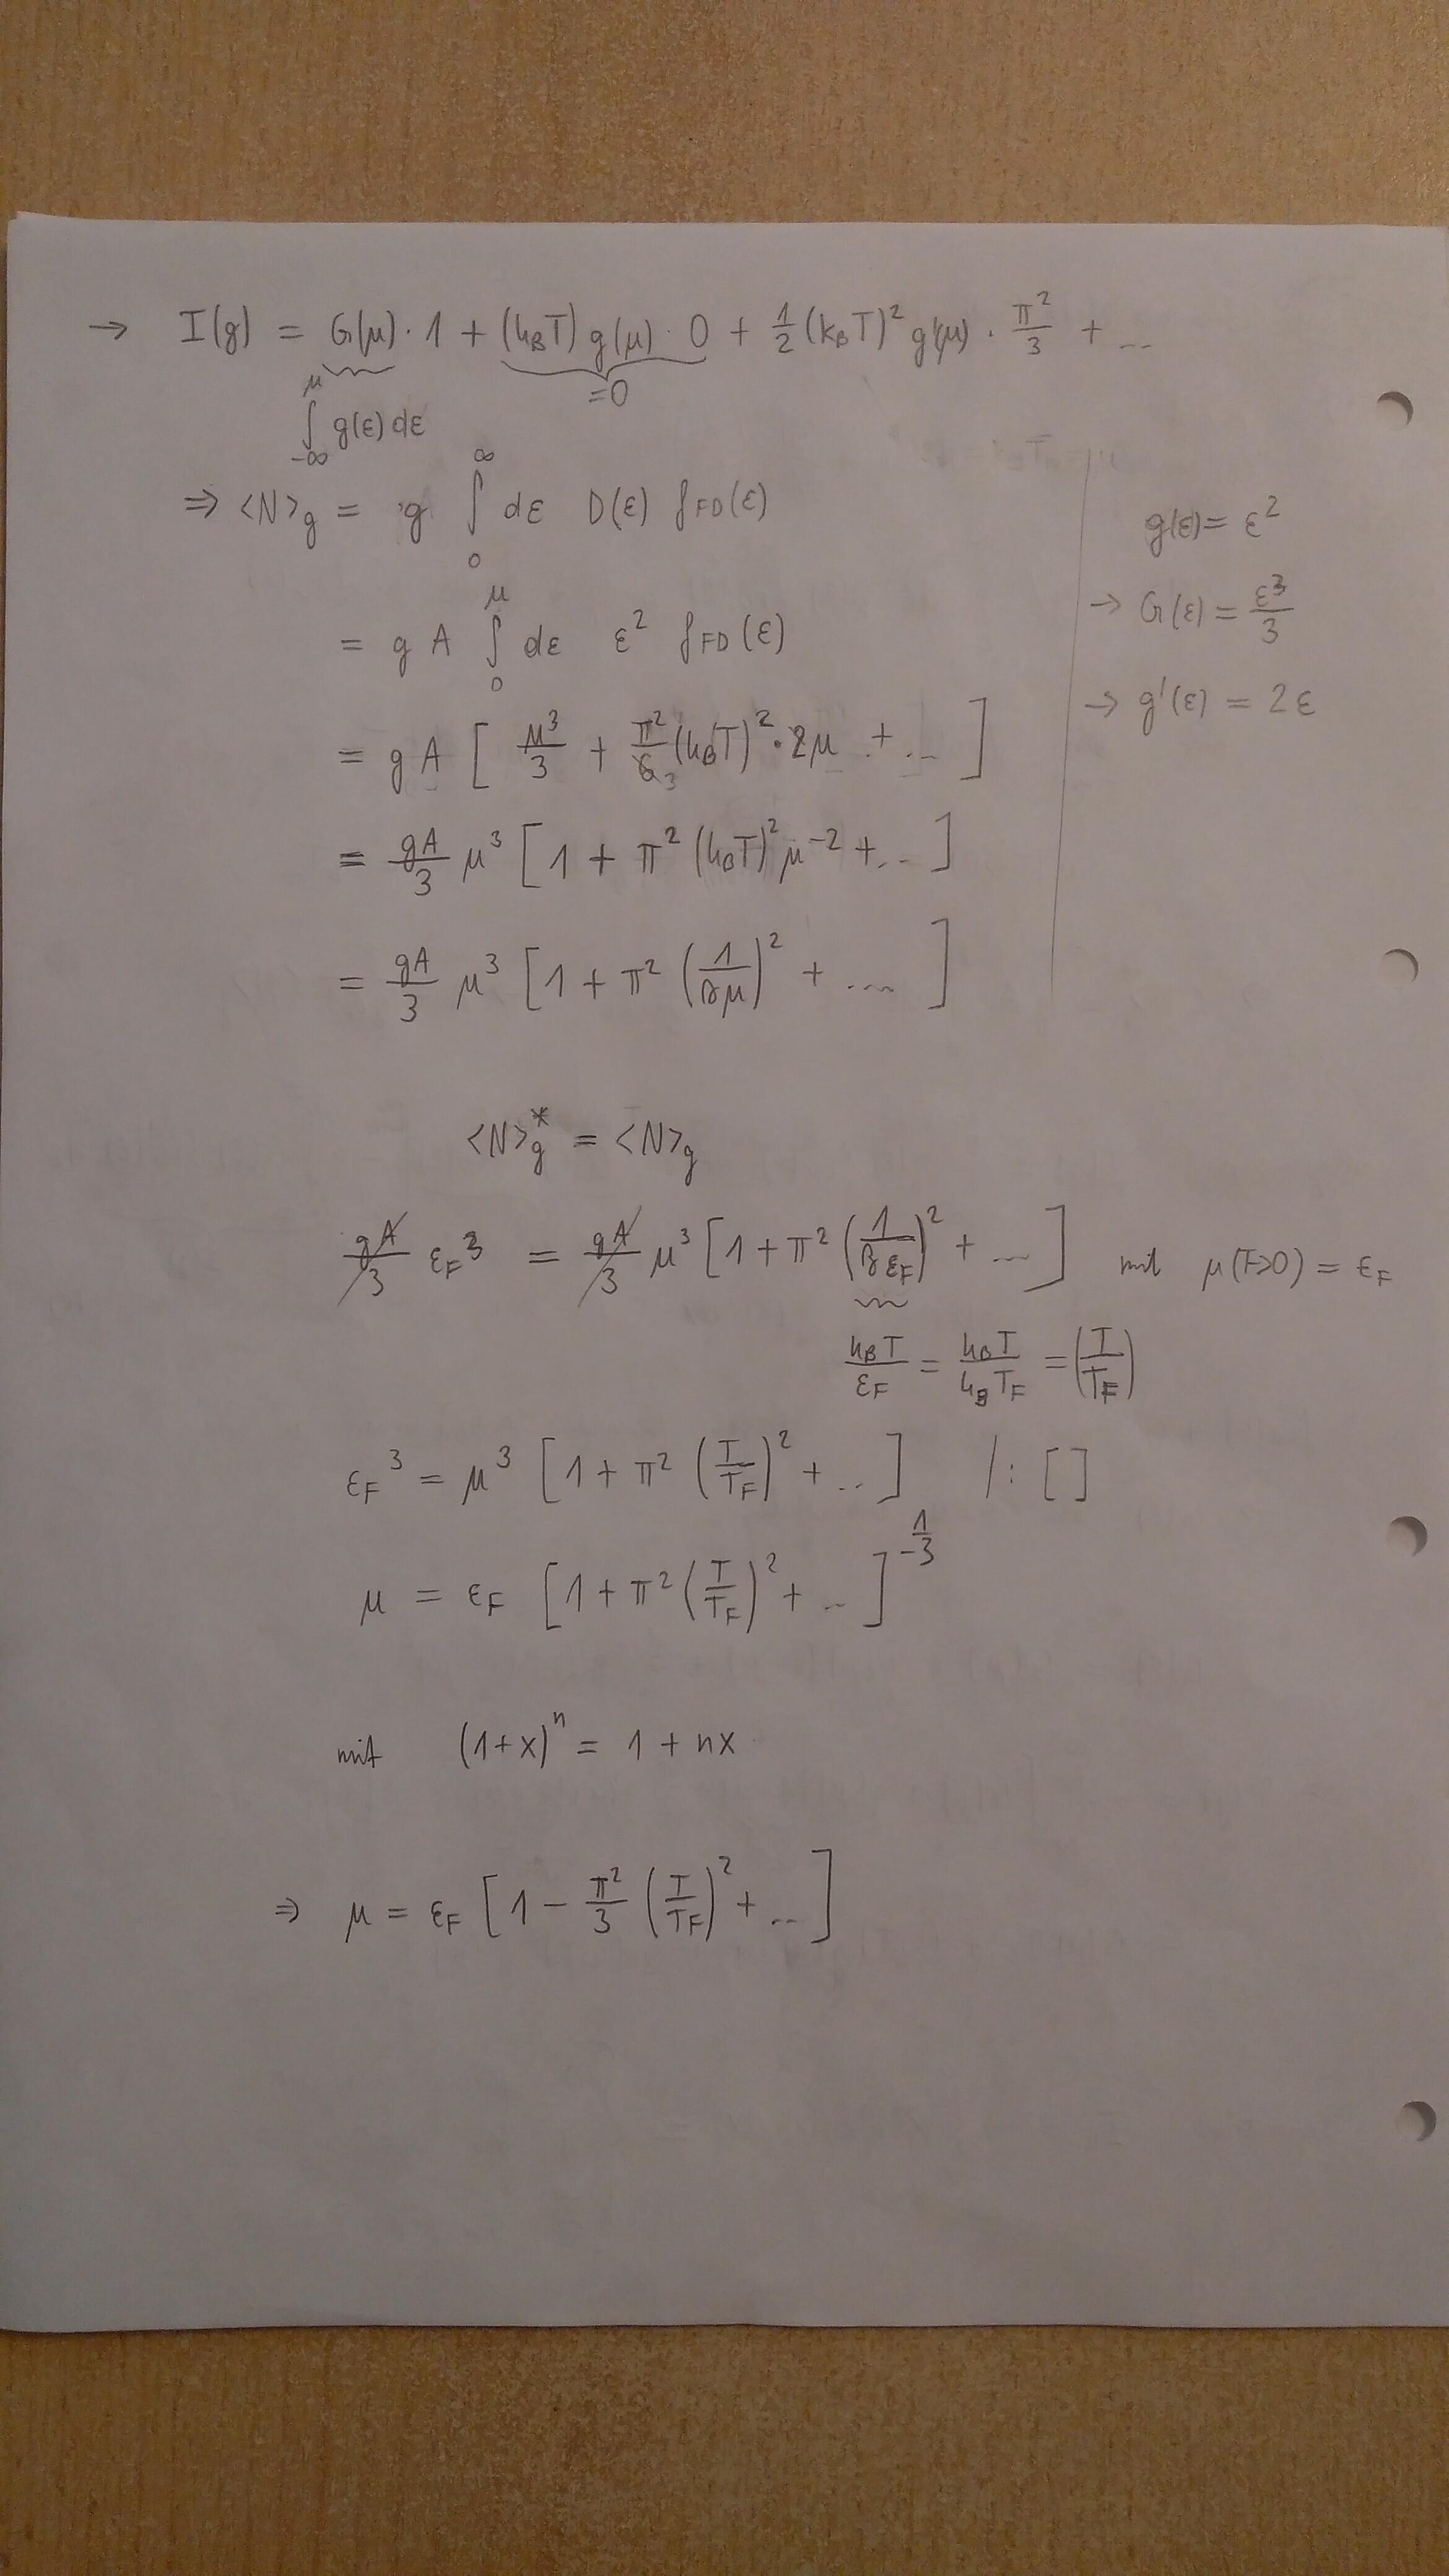 → I(g) = G(μ) · 1 + (k_B T) g(μ) · 0 + 1/2 (k_B T)² g'(μ) · π²/3 + ...
∫_{-∞}^{μ} g(ε) dε
= 0
⇒ <N>_g = g ∫_0^∞ dε D(ε) f_FD(ε)
g(ε) = ε²
= g A ∫_0^μ dε ε² f_FD(ε)
→ G(ε) = ε³/3
→ g'(ε) = 2ε
= g A [ μ³/3 + π²/6 3 (k_B T)² · 2μ + ... ]
= gA/3 μ³ [ 1 + π² (k_B T)² μ⁻² + ... ]
= gA/3 μ³ [ 1 + π² (1/βμ)² + .... ]
<N>_g* = <N>_g
gA/3 ε_F³ = gA/3 μ³ [ 1 + π² (1/βε_F)² + ... ] mit μ(T>0) = ε_F
k_B T/ε_F = k_B T/k_B T_F = (T/T_F)
ε_F³ = μ³ [ 1 + π² (T/T_F)² + .. ] /: [ ]
μ = ε_F [ 1 + π² (T/T_F)² + .. ]^{-1/3}
mit (1+x)ⁿ = 1 + nx
⇒ μ = ε_F [ 1 - π²/3 (T/T_F)² + ... ]